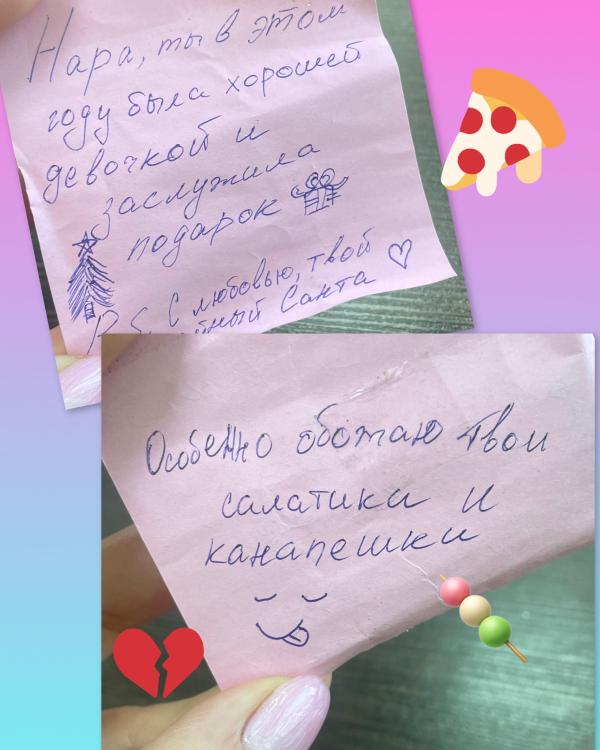 Нара, ты в этом
году была хорошей
девочкой и
заслужила
подарок
P.S. С любовью, твой
Санта
Особенно обожаю твои
салатики и
канапешки